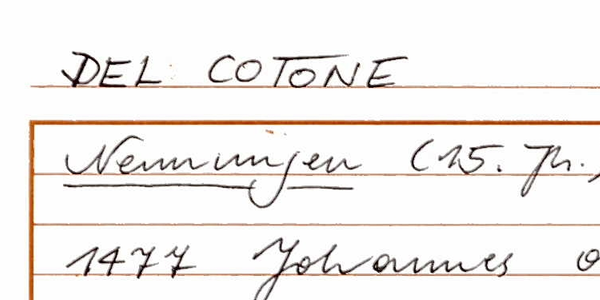 DEL COTONE
Nennungen (15. Jh.,
1477 Johannes